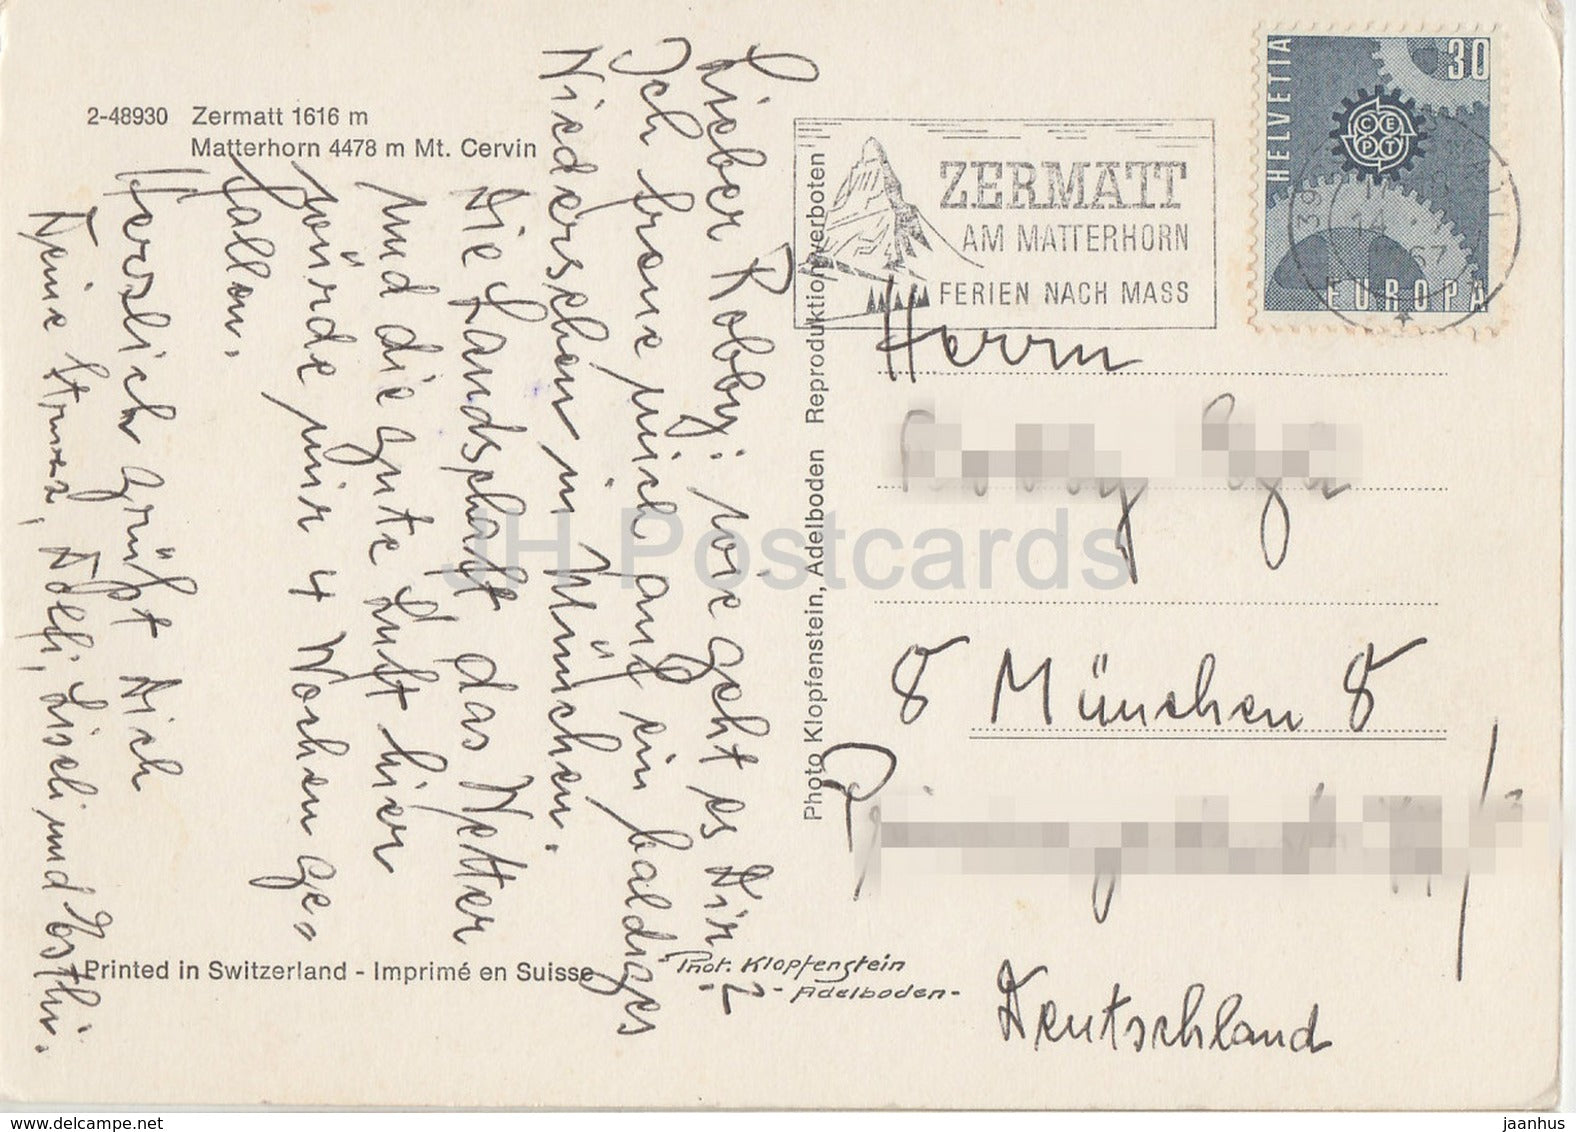 2-48930 Zermatt 1616 m
Matterhorn 4478 m Mt. Cervin
Lieber Robby! wie geht es Dir?
Ich freue mich auf ein baldiges
Wiedersehen in München.
Die Landschaft, das Wetter
und die gute Luft hier
würde mir 4 Wochen ge-
fallen.
Herzlich grüßt Dich
Deine Dolfi, Liseli und Esthi.
Printed in Switzerland - Imprimé en Suisse
Phot. Klopfenstein
- Adelboden -
Photo Klopfenstein, Adelboden Reproduktion verboten
ZERMATT
AM MATTERHORN
FERIEN NACH MASS
HELVETIA
30
CEPT
EUROPA
14. 67
Herrn
8 München 8
Deutschland
JH Postcards
www.delcampe.net
jaanhus